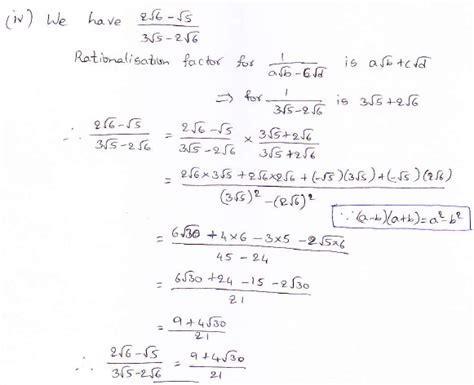 (iv) We have (2√6 - √5)/(3√5 - 2√6)
Rationalisation factor for 1/(a√b - c√d) is a√b + c√d
⇒ for 1/(3√5 - 2√6) is 3√5 + 2√6
∴ (2√6 - √5)/(3√5 - 2√6) = (2√6 - √5)/(3√5 - 2√6) × (3√5 + 2√6)/(3√5 + 2√6)
= (2√6 × 3√5 + 2√6 × 2√6 + (-√5)(3√5) + (-√5)(2√6))/((3√5)² - (2√6)²)
∵ (a-b)(a+b) = a² b²
= (6√30 + 4×6 - 3×5 - 2√5×6)/(45 - 24)
= (6√30 + 24 - 15 - 2√30)/21
= (9 + 4√30)/21
∴ (2√6 - √5)/(3√5 - 2√6) = (9 + 4√30)/21